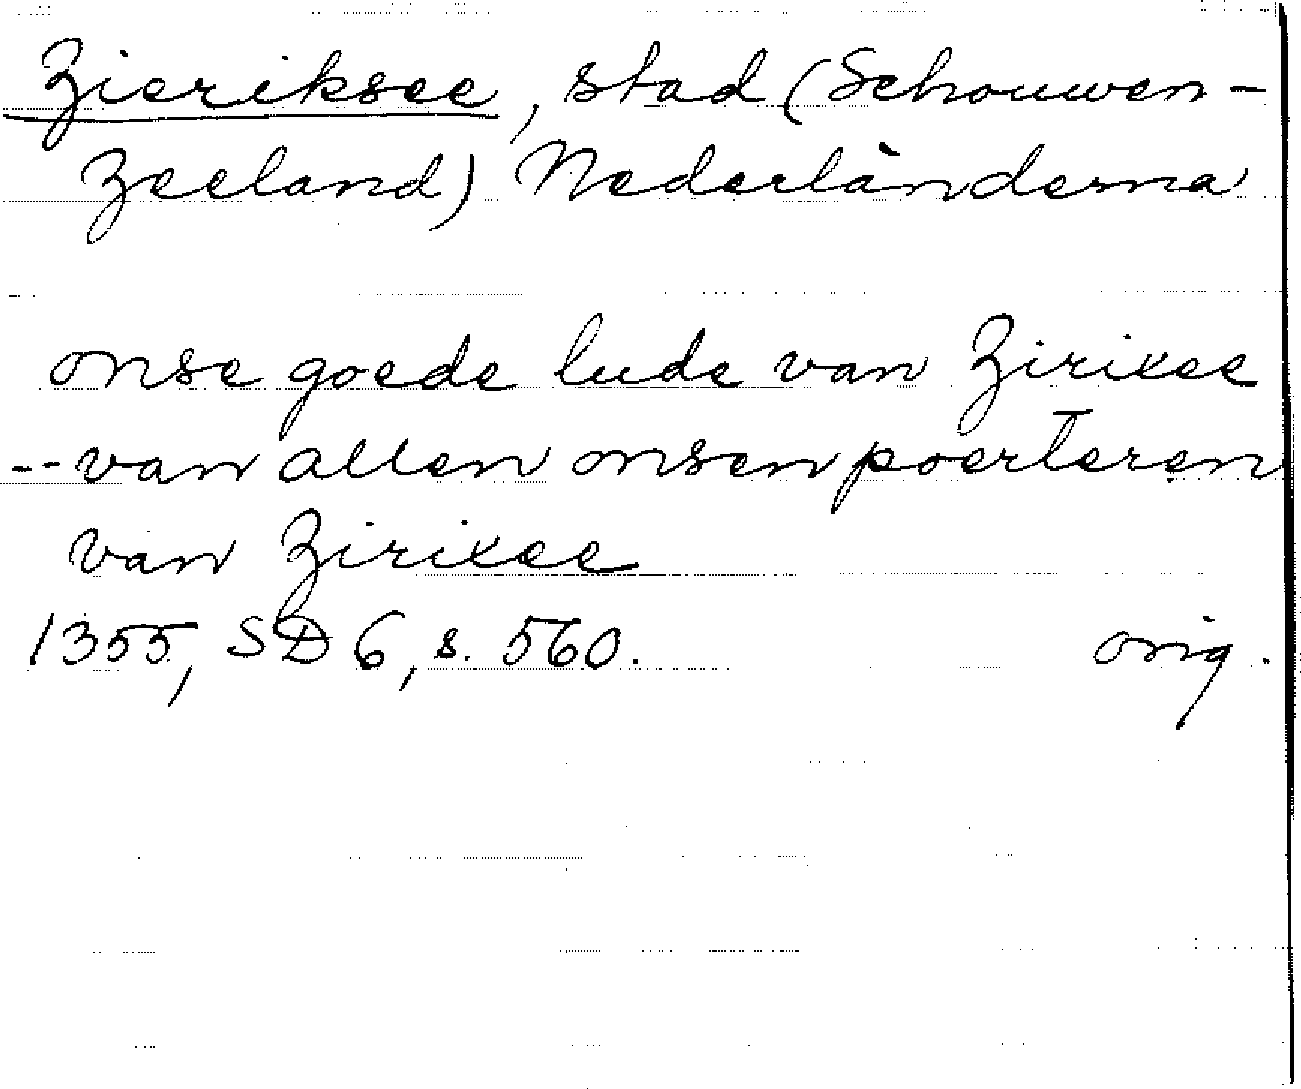 Zieriksee, stad (Schouwen-
Zeeland) Nederländerna
onse goede lude van Zirixee
-- van allen onsen poerteren
van Zirixee
1355, SD 6, s. 560. orig.